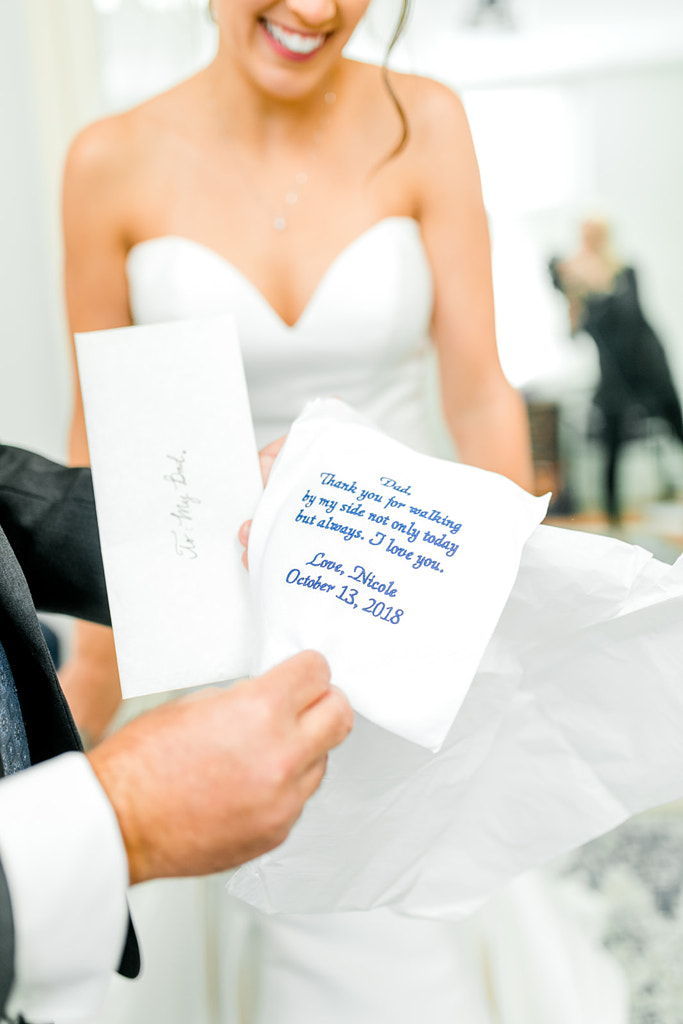 To: My Dad.
Dad,
Thank you for walking
by my side not only today
but always. I love you.
Love, Nicole
October 13, 2018